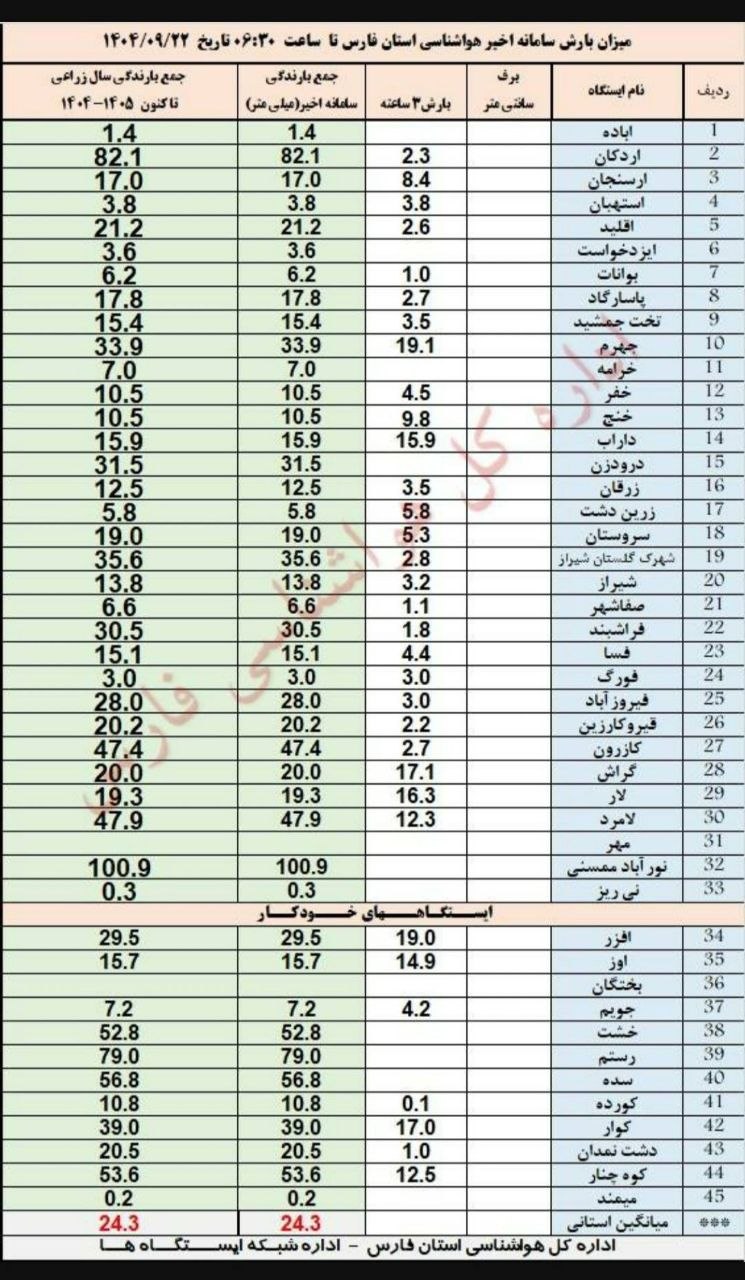 میزان بارش سامانه اخیر هواشناسی استان فارس تا ساعت ۰۶:۳۰ تاریخ ۱۴۰۴/۰۹/۲۲
ردیف نام ایستگاه برف سانتی متر بارش۳ ساعته جمع بارندگی سامانه اخیر(میلی متر) جمع بارندگی سال زراعی تاکنون ۱۴۰۵-۱۴۰۴
1 اباده 1.4 1.4
2 اردکان 2.3 82.1 82.1
3 ارسنجان 8.4 17.0 17.0
4 استهبان 3.8 3.8 3.8
5 اقلید 2.6 21.2 21.2
6 ایزدخواست 3.6 3.6
7 بوانات 1.0 6.2 6.2
8 پاسارگاد 2.7 17.8 17.8
9 تخت جمشید 3.5 15.4 15.4
10 جهرم 19.1 33.9 33.9
11 خرامه 7.0 7.0
12 خفر 4.5 10.5 10.5
13 خنج 9.8 10.5 10.5
14 داراب 15.9 15.9 15.9
15 درودزن 31.5 31.5
16 زرقان 3.5 12.5 12.5
17 زرین دشت 5.8 5.8 5.8
18 سروستان 5.3 19.0 19.0
19 شهرک گلستان شیراز 2.8 35.6 35.6
20 شیراز 3.2 13.8 13.8
21 صفاشهر 1.1 6.6 6.6
22 فراشبند 1.8 30.5 30.5
23 فسا 4.4 15.1 15.1
24 فورگ 3.0 3.0 3.0
25 فیروز آباد 3.0 28.0 28.0
26 قیروکارزین 2.2 20.2 20.2
27 کازرون 2.7 47.4 47.4
28 گراش 17.1 20.0 20.0
29 لار 16.3 19.3 19.3
30 لامرد 12.3 47.9 47.9
31 مهر
32 نورآباد ممسنی 100.9 100.9
33 نی ریز 0.3 0.3
ایستگاههای خودکار
34 افزر 19.0 29.5 29.5
35 اوز 14.9 15.7 15.7
36 بختگان
37 جویم 4.2 7.2 7.2
38 خشت 52.8 52.8
39 رستم 79.0 79.0
40 سده 56.8 56.8
41 کورده 0.1 10.8 10.8
42 کوار 17.0 39.0 39.0
43 دشت نمدان 1.0 20.5 20.5
44 کوه چنار 12.5 53.6 53.6
45 میمند 0.2 0.2
*** میانگین استانی 24.3 24.3
اداره کل هواشناسی استان فارس - اداره شبکه ایستگاه ها
اداره کل هواشناسی فارس